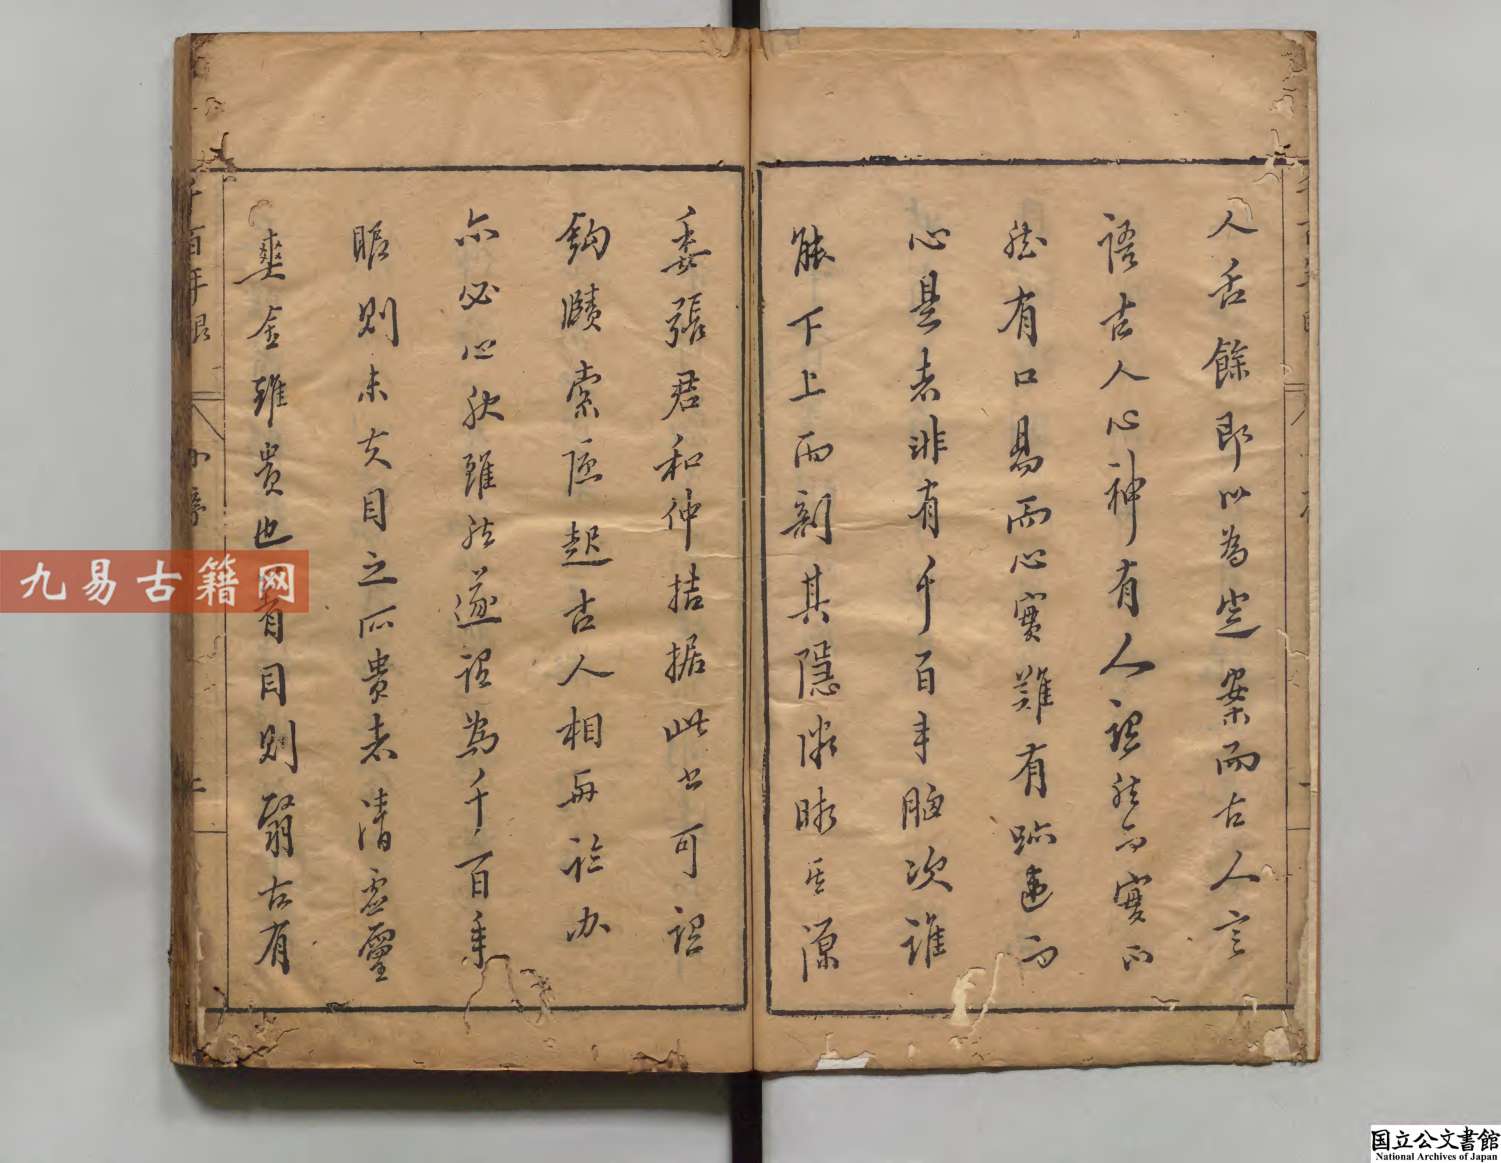 人舌餘即以為定案而古人言
語古人心神有人認然而實不
然有口易而心實難有跡違而
心是者非有千百年胸次誰
能下上而剖其隱微晰其源
委張君和仲拮据此書可認
鈎賾索隱起古人相與論辦
亦必心秋雖然遂認為千百年
眼則未夫目之所貴者清虛靈
爽金雖貴也着目則翳古有
千百年眼
小序
九易古籍网
国立公文書館
National Archives of Japan